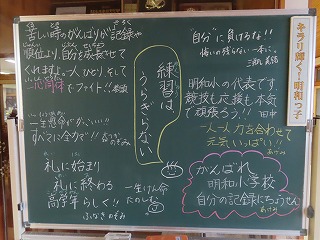 苦しい時のがんばりが記録や
順位より、自分を成長させて
くれます。一人ひとりそして
心一同体でファイト!!
一生懸命がかっこいい!!
すべてに全力で!!
礼に始まり
礼に終わる
高学年らしく!!
ふなきのぞみ
一生けん命
たのしむ
練習は
うらぎらない
"自分"に負けるな!!
悔いの残らない一本に。
明和小の代表です
競技も応援も本気
で頑張ろう!! 田中
一人一人力を合わせて
元気いっぱい!!
あけみ
がんばれ
明和小学校
自分の記録にちょうせん
あけみ
キラリ輝く!明和っ子